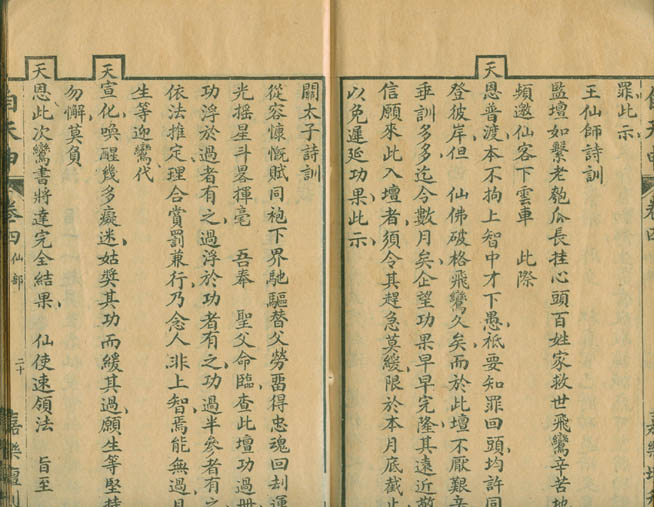 罪此示
王仙師詩訓
監壇如繫老匏瓜長挂心頭百姓家救世飛鸞辛苦地
頻邀仙客下雲車 此際
天恩普渡本不拘上智中才下愚祗要知罪回頭均許同
登彼岸但 仙佛破格飛鸞久矣而於此壇不厭艱辛
垂訓多多迄今數月矣企望功果早早完隆其遠近敬
信願來此入壇者須令其趕急莫緩限於本月底截止
以免遲延功果此示
關太子詩訓
從容慷慨賦同袍下界馳驅替父勞畱得忠魂回刦運
光搖星斗畧揮毫 吾奉 聖父命臨查此壇功過冊
功浮於過者有之過浮於功者有之功過半參者有之
依法推定理合賞罰兼行乃念人非上智焉能無過且
生等迎鸞代
天宣化喚醒幾多癡迷姑獎其功而緩其過願生等堅持
勿懈莫負
天恩此次鸞書將達完全結果 仙使速領法 旨至
自天申 卷四 仙部 二十 嘉樂壇刊